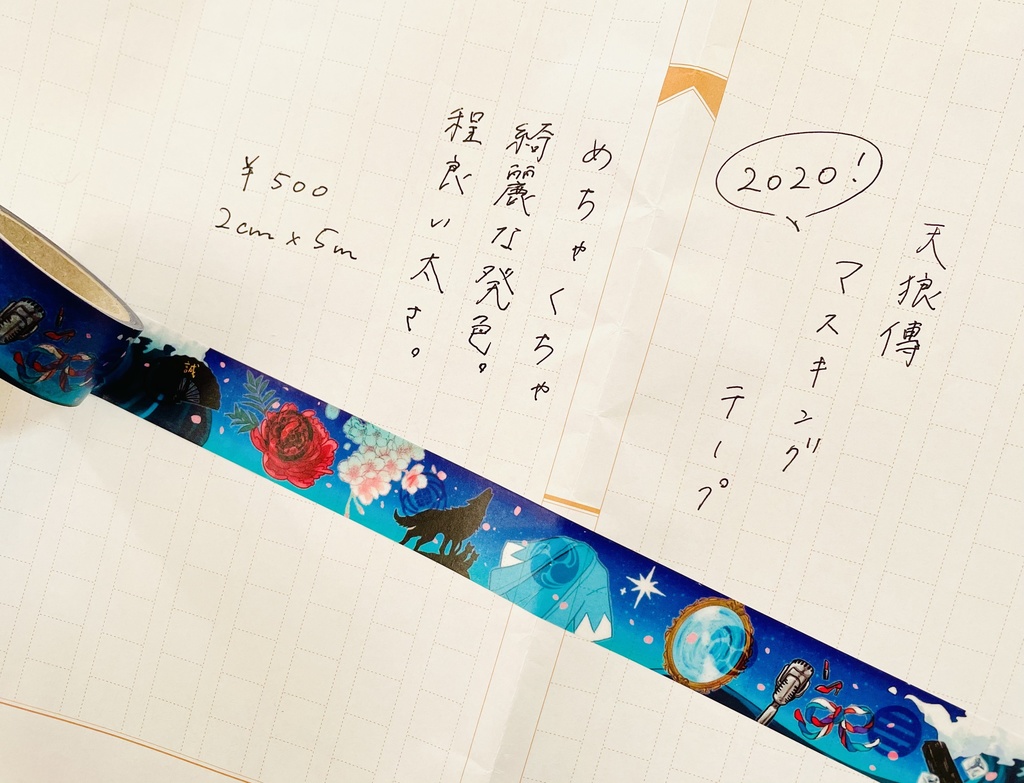 2020!
天狼傳
マスキング
テープ
めちゃくちゃ
綺麗な発色。
程良い太さ。
¥500
2cm×5m
誠